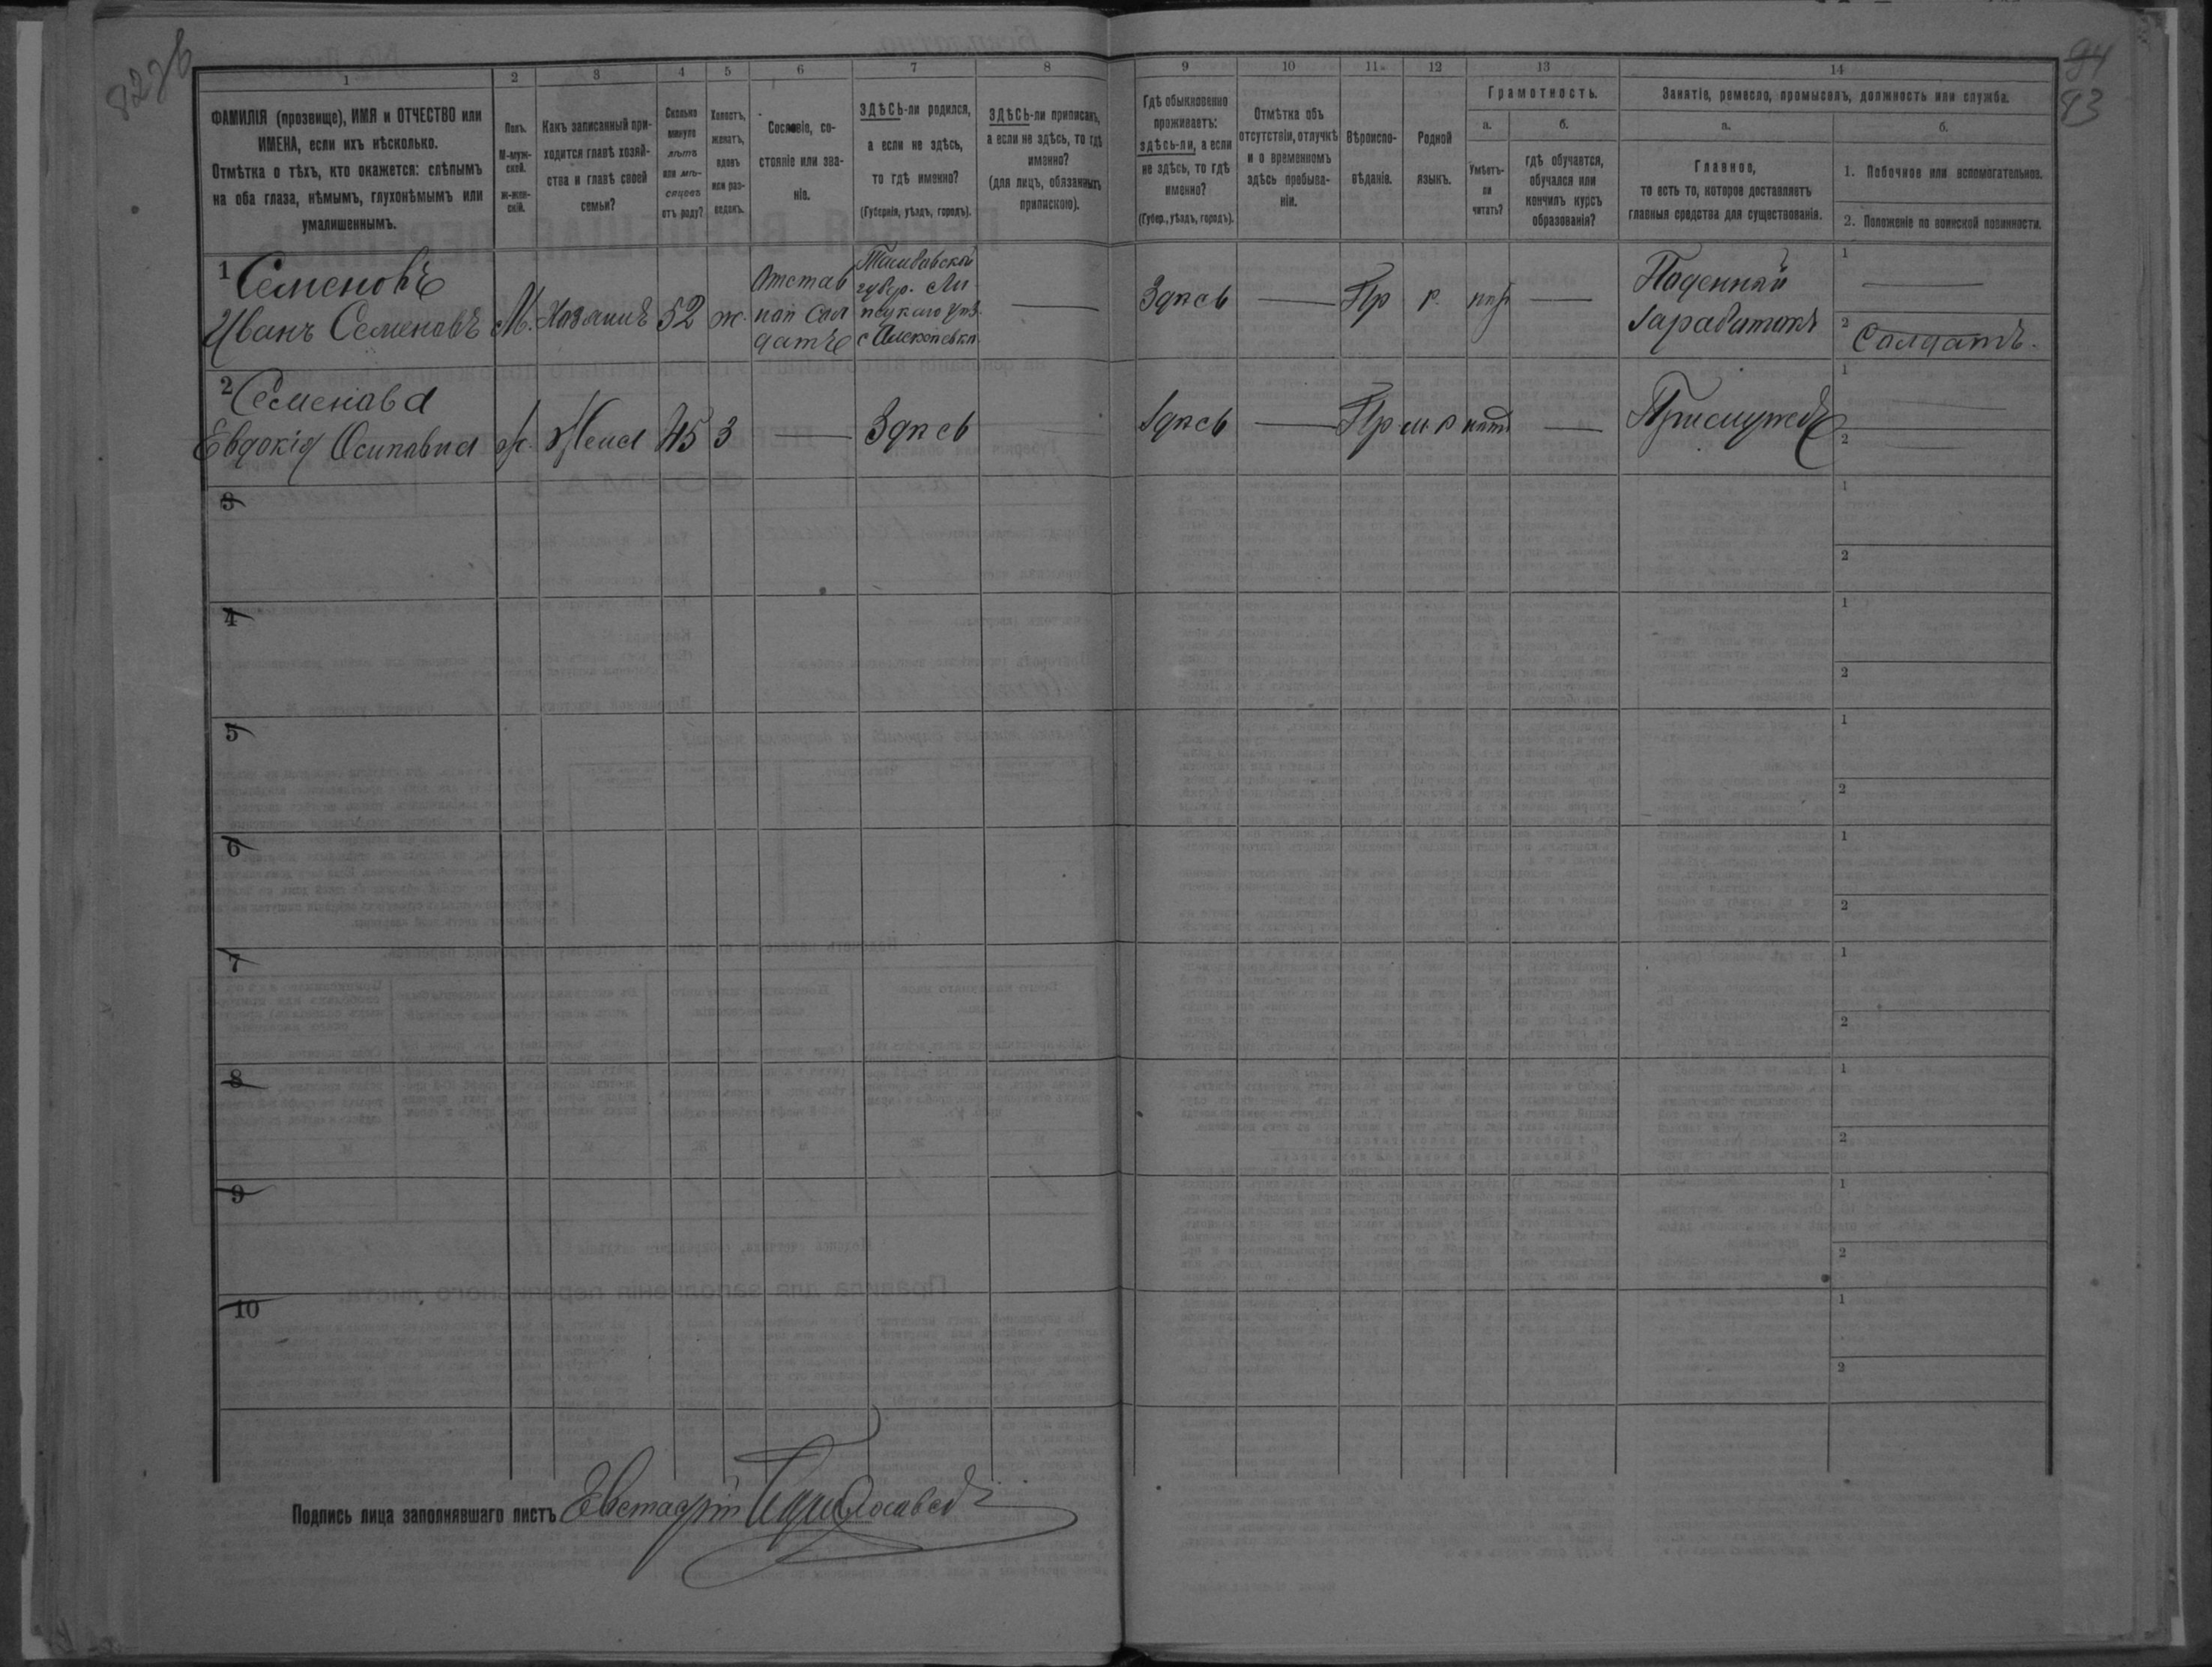 822 в
94
83
1
2
3
4
5
6
7
8
9
10
11
12
13
14
ФАМИЛІЯ (прозвище), ИМЯ и ОТЧЕСТВО или
ИМЕНА, если ихъ нѣсколько.
Отмѣтка о тѣхъ, кто окажется: слѣпымъ
на оба глаза, нѣмымъ, глухонѣмымъ или
умалишеннымъ.
Полъ.
М-муж-
ской.
Ж-жен-
скій.
Какъ записанный при-
ходится главѣ хозяй-
ства и главѣ своей
семьи?
Сколько
минуло
лѣтъ
или мѣ-
сяцевъ
отъ роду?
Холостъ,
женатъ,
вдовъ
или раз-
веденъ.
Сословіе, со-
стояніе или зва-
ніе.
ЗДѢСЬ-ли родился,
а если не здѣсь,
то гдѣ именно?
(Губернія, уѣздъ, городъ).
ЗДѢСЬ-ли приписанъ,
а если не здѣсь, то гдѣ
именно?
(для лицъ, обязанныхъ
припискою).
Гдѣ обыкновенно
проживаетъ:
здѣсь-ли, а если
не здѣсь, то гдѣ
именно?
(Губер., уѣздъ, городъ).
Отмѣтка объ
отсутствіи, отлучкѣ
и о временномъ
здѣсь пребыва-
ніи.
Вѣроиспо-
вѣданіе.
Родной
языкъ.
Грамотность.
а.
б.
Умѣетъ-
ли
читать?
гдѣ обучается,
обучался или
кончилъ курсъ
образованія?
Занятіе, ремесло, промыселъ, должность или служба.
а.
б.
Главное,
то есть то, которое доставляетъ
главныя средства для существованія.
1. Побочное или вспомогательное.
2. Положеніе по воинской повинности.
1 Семеновъ
Иванъ Семеновъ
М.
Хозяинъ
52
ж.
Отстав
ной Сол
датъ
Тамбовской
губер. Ли
пецкаго уѣз.
Здѣсь
Пр
р.
Поденный
Заработокъ
1
2 Солдатъ.
2 Семенова
Евдокія Осиповна
ж.
Жена
45
З
Здѣсь
Здѣсь
Пр
Прислужед
1
2
3
1
2
4
1
2
5
1
2
6
1
2
7
1
2
8
1
2
9
1
2
10
1
2
Подпись лица заполнявшаго листъ Евстафій